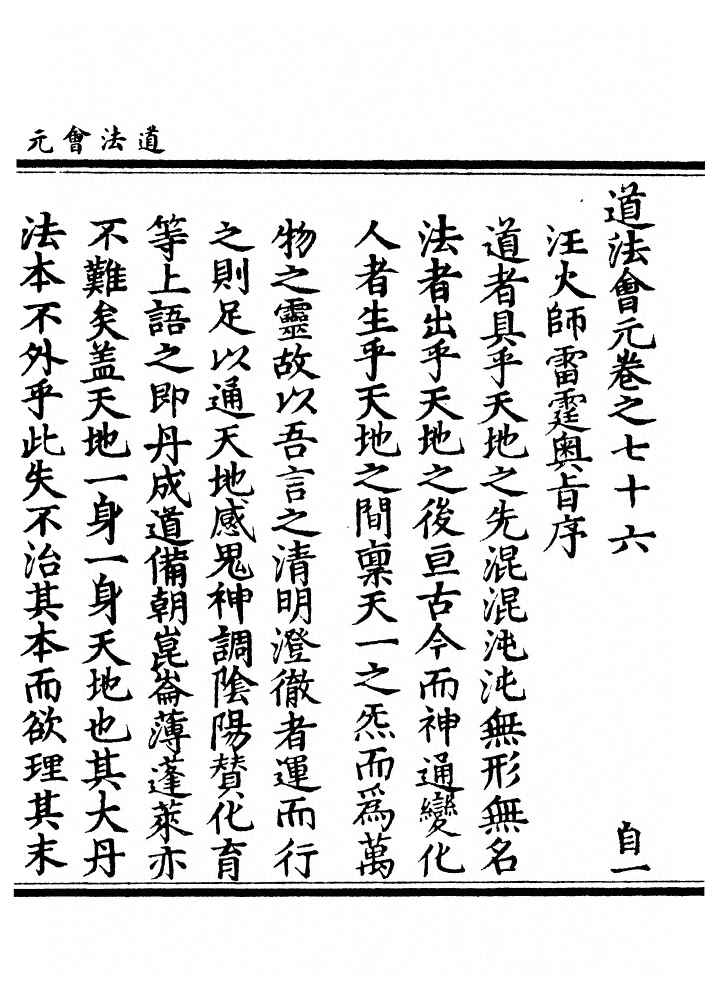 道法會元
道法會元卷之七十六
自一
汪火師雷霆奧旨序
道者具乎天地之先混混沌沌無形無名
法者出乎天地之後亘古今而神通變化
人者生乎天地之間稟天一之炁而爲萬
物之靈故以吾言之清明澄徹者運而行
之則足以通天地感鬼神調陰陽賛化育
等上語之即丹成道備朝崑崙薄蓬萊亦
不難矣盖天地一身一身天地也其大丹
法本不外乎此失不治其本而欲理其末